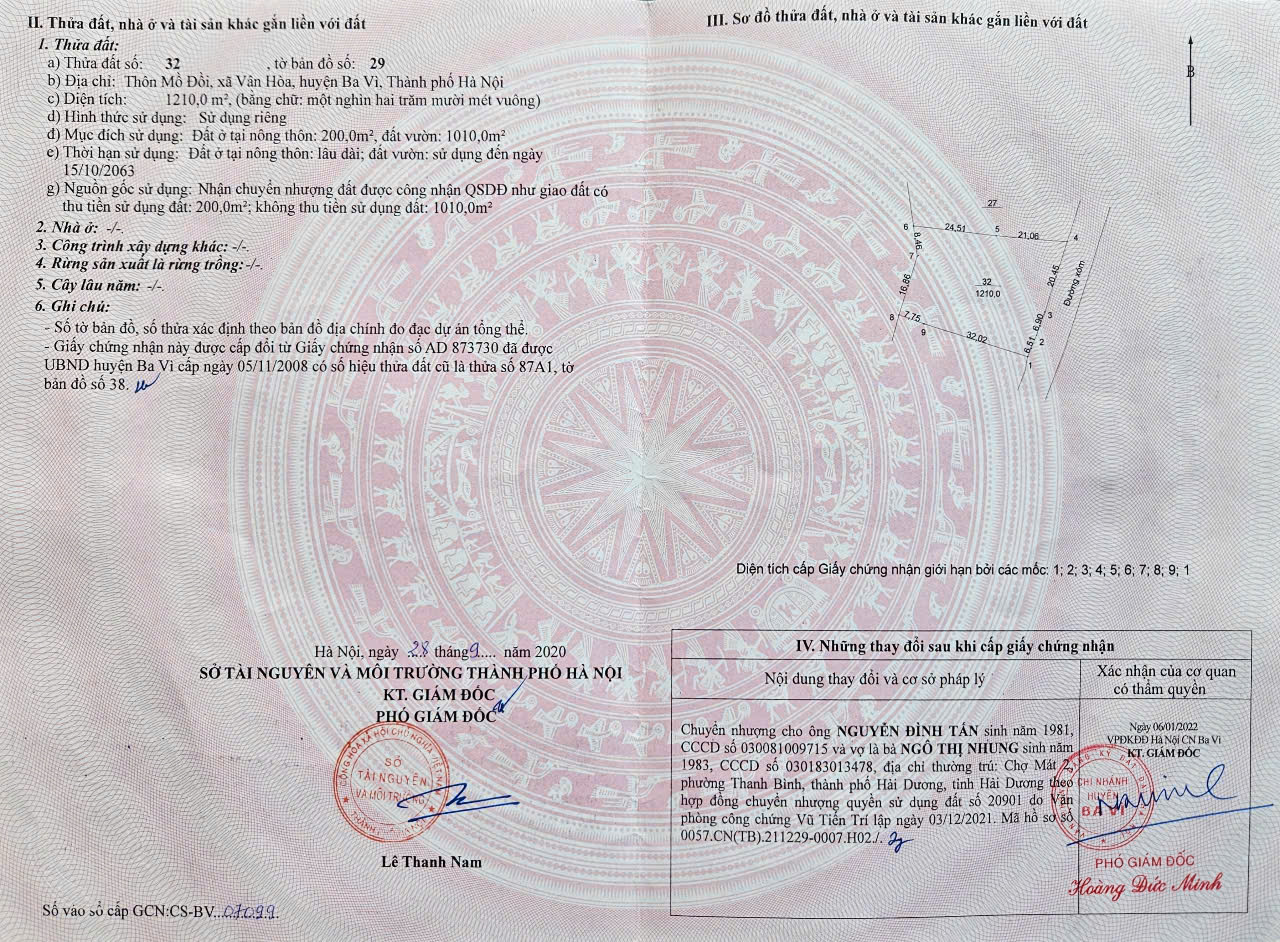 II. Thửa đất, nhà ở và tài sản khác gắn liền với đất
1. Thửa đất:
a) Thửa đất số: 32 , tờ bản đồ số: 29
b) Địa chỉ: Thôn Mồ Đồi, xã Vân Hòa, huyện Ba Vì, Thành phố Hà Nội
c) Diện tích: 1210,0 m², (bằng chữ: một nghìn hai trăm mười mét vuông)
d) Hình thức sử dụng: Sử dụng riêng
đ) Mục đích sử dụng: Đất ở tại nông thôn: 200,0m², đất vườn: 1010,0m²
e) Thời hạn sử dụng: Đất ở tại nông thôn: lâu dài; đất vườn: sử dụng đến ngày
15/10/2063
g) Nguồn gốc sử dụng: Nhận chuyển nhượng đất được công nhận QSDĐ như giao đất có
thu tiền sử dụng đất: 200,0m²; không thu tiền sử dụng đất: 1010,0m²
2. Nhà ở: -/-.
3. Công trình xây dựng khác: -/-.
4. Rừng sản xuất là rừng trồng: -/-.
5. Cây lâu năm: -/-.
6. Ghi chú:
- Số tờ bản đồ, số thửa xác định theo bản đồ địa chính đo đạc dự án tổng thể.
- Giấy chứng nhận này được cấp đổi từ Giấy chứng nhận số AD 873730 đã được
UBND huyện Ba Vì cấp ngày 05/11/2008 có số hiệu thửa đất cũ là thửa số 87A1, tờ
bản đồ số 38.
Hà Nội, ngày 28 tháng 9 năm 2020
SỞ TÀI NGUYÊN VÀ MÔI TRƯỜNG THÀNH PHỐ HÀ NỘI
KT. GIÁM ĐỐC
PHÓ GIÁM ĐỐC
CỘNG HÒA XÃ HỘI CHỦ NGHĨA VIỆT NAM
SỞ
TÀI NGUYÊN
VÀ MÔI TRƯỜNG
Lê Thanh Nam
Số vào sổ cấp GCN:CS-BV...07099.
III. Sơ đồ thửa đất, nhà ở và tài sản khác gắn liền với đất
B
27
6 24,51 5 21,06 4
8,46
7
16,86
32
1210,0
20,45
Đường xóm
8 7,75 9 32,02
6,90 3
6,51 2
1
Diện tích cấp Giấy chứng nhận giới hạn bởi các mốc: 1; 2; 3; 4; 5; 6; 7; 8; 9; 1
IV. Những thay đổi sau khi cấp giấy chứng nhận
Nội dung thay đổi và cơ sở pháp lý
Xác nhận của cơ quan
có thẩm quyền
Chuyển nhượng cho ông NGUYỄN ĐÌNH TẤN sinh năm 1981,
CCCD số 030081009715 và vợ là bà NGÔ THỊ NHUNG sinh năm
1983, CCCD số 030183013478, địa chỉ thường trú: Chợ Mát 2,
phường Thanh Bình, thành phố Hải Dương, tỉnh Hải Dương theo
hợp đồng chuyển nhượng quyền sử dụng đất số 20901 do Văn
phòng công chứng Vũ Tiến Trí lập ngày 03/12/2021. Mã hồ sơ số
0057.CN(TB).211229-0007.H02./.
Ngày 06/01/2022
VPĐKĐĐ Hà Nội CN Ba Vì
KT. GIÁM ĐỐC
CHI NHÁNH
HUYỆN
BA VÌ
PHÓ GIÁM ĐỐC
Hoàng Đức Minh